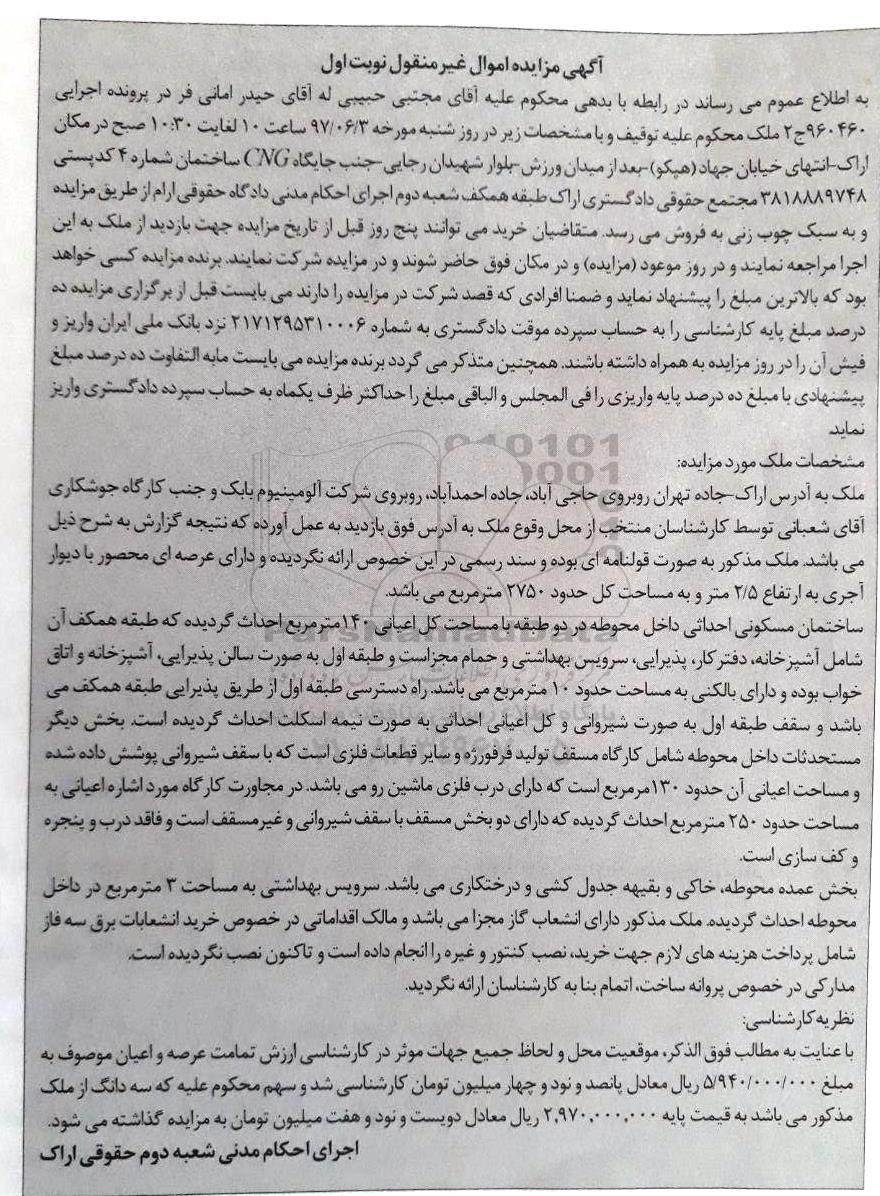 آگهی مزایده اموال غیر منقول نوبت اول
به اطلاع عموم می رساند در رابطه با بدهی محکوم علیه آقای مجتبی حبیبی له آقای حیدر امانی فر در پرونده اجرایی
۹۶۰۴۶۰ج۲ ملک محکوم علیه توقیف و با مشخصات زیر در روز شنبه مورخه ۹۷/۰۶/۳ ساعت ۱۰ لغایت ۱۰:۳۰ صبح در مکان
اراک-انتهای خیابان جهاد (هپکو)-بعد از میدان ورزش-بلوار شهیدان رجایی-جنب جایگاه CNG ساختمان شماره ۴ کدپستی
۳۸۱۸۸۸۹۷۴۸ مجتمع حقوقی دادگستری اراک طبقه همکف شعبه دوم اجرای احکام مدنی دادگاه حقوقی ارام از طریق مزایده
و به سبک چوب زنی به فروش می رسد. متقاضیان خرید می توانند پنج روز قبل از تاریخ مزایده جهت بازدید از ملک به این
اجرا مراجعه نمایند و در روز موعود (مزایده) و در مکان فوق حاضر شوند و در مزایده شرکت نمایند. برنده مزایده کسی خواهد
بود که بالاترین مبلغ را پیشنهاد نماید و ضمنا افرادی که قصد شرکت در مزایده را دارند می بایست قبل از برگزاری مزایده ده
درصد مبلغ پایه کارشناسی را به حساب سپرده موقت دادگستری به شماره ۲۱۷۱۲۹۵۳۱۰۰۰۶ نزد بانک ملی ایران واریز و
فیش آن را در روز مزایده به همراه داشته باشند. همچنین متذکر می گردد برنده مزایده می بایست مابه التفاوت ده درصد مبلغ
پیشنهادی با مبلغ ده درصد پایه واریزی را فی المجلس و الباقی مبلغ را حداکثر ظرف یکماه به حساب سپرده دادگستری واریز
نماید.
مشخصات ملک مورد مزایده:
ملک به آدرس اراک-جاده تهران روبروی حاجی آباد، جاده احمدآباد، روبروی شرکت آلومینیوم بابک و جنب کارگاه جوشکاری
آقای شعبانی توسط کارشناسان منتخب از محل وقوع ملک به آدرس فوق بازدید به عمل آورده که نتیجه گزارش به شرح ذیل
می باشد. ملک مذکور به صورت قولنامه ای بوده و سند رسمی در این خصوص ارائه نگردیده و دارای عرصه ای محصور با دیوار
آجری به ارتفاع ۲/۵ متر و به مساحت کل حدود ۲۷۵۰ مترمربع می باشد.
ساختمان مسکونی احداثی داخل محوطه در دو طبقه با مساحت کل اعیانی ۱۴۰مترمربع احداث گردیده که طبقه همکف آن
شامل آشپزخانه، دفتر کار، پذیرایی، سرویس بهداشتی و حمام مجزاست و طبقه اول به صورت سالن پذیرایی، آشپزخانه و اتاق
خواب بوده و دارای بالکنی به مساحت حدود ۱۰ مترمربع می باشد. راه دسترسی طبقه اول از طریق پذیرایی طبقه همکف می
باشد و سقف طبقه اول به صورت شیروانی و کل اعیانی احداثی به صورت نیمه اسکلت احداث گردیده است. بخش دیگر
مستحدثات داخل محوطه شامل کارگاه مسقف تولید فرفورژه و سایر قطعات فلزی است که با سقف شیروانی پوشش داده شده
و مساحت اعیانی آن حدود ۱۳۰مرمربع است که دارای درب فلزی ماشین رو می باشد. در مجاورت کارگاه مورد اشاره اعیانی به
مساحت حدود ۲۵۰ مترمربع احداث گردیده که دارای دو بخش مسقف با سقف شیروانی و غیرمسقف است و فاقد درب و پنجره
و کف سازی است.
بخش عمده محوطه، خاکی و بقیهه جدول کشی و درختکاری می باشد. سرویس بهداشتی به مساحت ۳ مترمربع در داخل
محوطه احداث گردیده. ملک مذکور دارای انشعاب گاز مجزا می باشد و مالک اقداماتی در خصوص خرید انشعابات برق سه فاز
شامل پرداخت هزینه های لازم جهت خرید، نصب کنتور و غیره را انجام داده است و تاکنون نصب نگردیده است.
مدارکی در خصوص پروانه ساخت، اتمام بنا به کارشناسان ارائه نگردید.
نظریه کارشناسی:
با عنایت به مطالب فوق الذکر، موقعیت محل و لحاظ جمیع جهات موثر در کارشناسی ارزش تمامت عرصه و اعیان موصوف به
مبلغ ۵/۹۴۰/۰۰۰/۰۰۰ ریال معادل پانصد و نود و چهار میلیون تومان کارشناسی شد و سهم محکوم علیه که سه دانگ از ملک
مذکور می باشد به قیمت پایه ۲,۹۷۰,۰۰۰,۰۰۰ ریال معادل دویست و نود و هفت میلیون تومان به مزایده گذاشته می شود.
اجرای احکام مدنی شعبه دوم حقوقی اراک
ParsNamadData